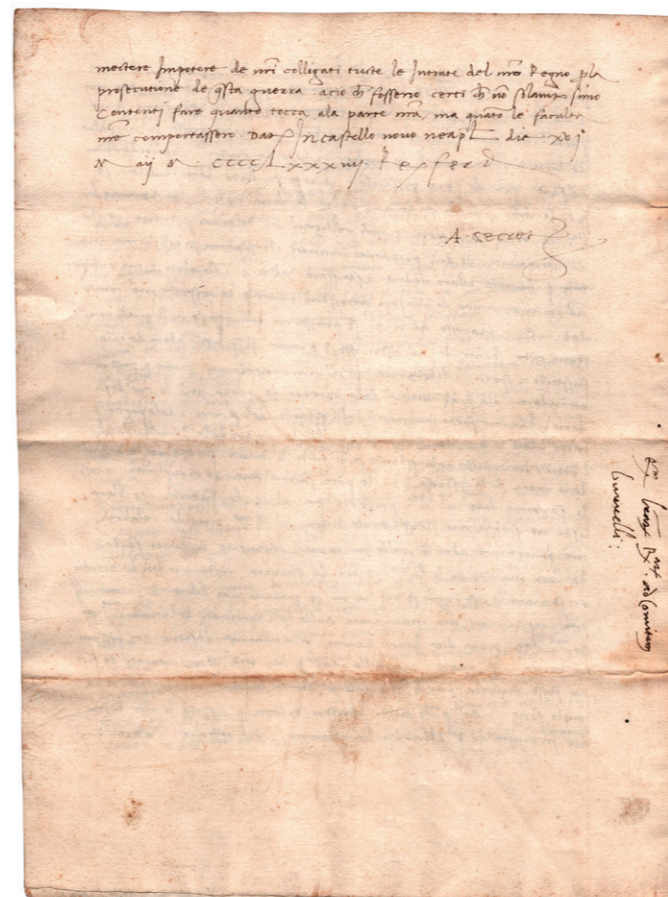 mectere Impotere de nrī colligati tucte le Intrate del nrō Regno p la
prosecutione de q̄sta guerra: acio ch̄ fossero certi ch̄ nō solam̄ simo
Contenti fare quanto tocca ala parte nrā, ma quāto le faculta
nrē comportassero. Dat In castello novo neapl̄ die xvj
M aij M CCCCLxxxiiij. Rex ferd
A. Secret
ad Comitem
burrelli: